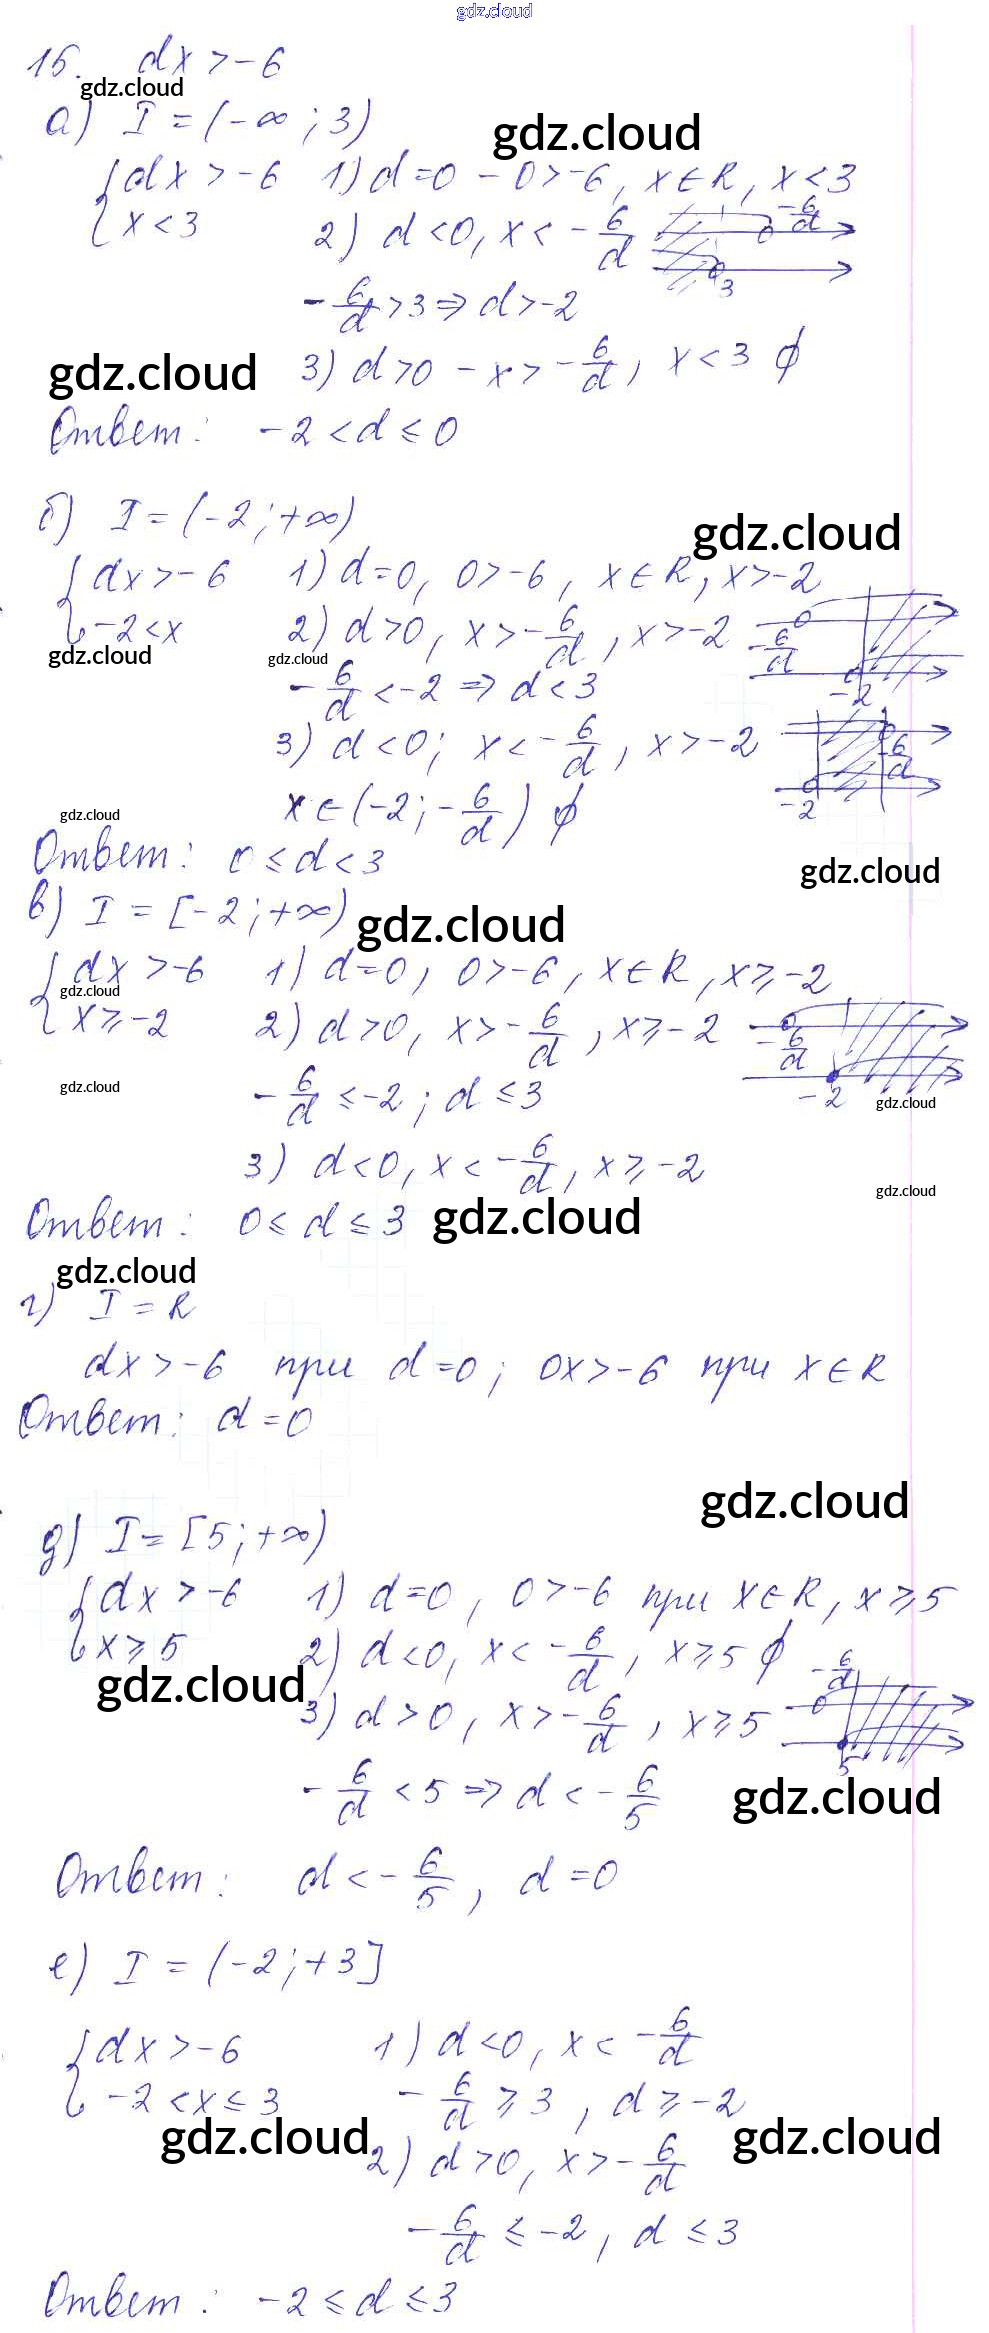 gdz.cloud
15. dx > -6
gdz.cloud
а) I = (-∞; 3)
gdz.cloud
{dx > -6 1) d=0 - 0 > -6, x∈R, x < 3
x < 3 2) d < 0, x < -6/d
-6/d
3
-6/d > 3 ⇒ d > -2
gdz.cloud
3) d > 0 - x > -6/d, x < 3 ∅
Ответ: -2 < d ≤ 0
б) I = (-2; +∞)
gdz.cloud
{dx > -6 1) d=0, 0 > -6, x∈R, x > -2
-2 < x 2) d > 0, x > -6/d, x > -2
-6/d
-2
gdz.cloud gdz.cloud
-6/d < -2 ⇒ d < 3
3) d < 0; x < -6/d, x > -2
-6/d
-2
x ∈ (-2; -6/d) ∅
gdz.cloud
Ответ: 0 ≤ d < 3
gdz.cloud
в) I = [-2; +∞)
gdz.cloud
{dx > -6 1) d=0, 0 > -6, x∈R, x ≥ -2
gdz.cloud
x ≥ -2 2) d > 0, x > -6/d, x ≥ -2
-6/d
-2
gdz.cloud
-6/d ≤ -2; d ≤ 3
gdz.cloud
3) d < 0, x < -6/d, x ≥ -2
gdz.cloud
Ответ: 0 ≤ d ≤ 3
gdz.cloud
gdz.cloud
г) I = R
dx > -6 при d=0; 0x > -6 при x∈R
Ответ: d=0
gdz.cloud
д) I = [5; +∞)
{dx > -6 1) d=0, 0 > -6 при x∈R, x ≥ 5
x ≥ 5 2) d < 0, x < -6/d, x ≥ 5 ∅
gdz.cloud
3) d > 0, x > -6/d, x ≥ 5
-6/d
5
-6/d < 5 ⇒ d < -6/5
gdz.cloud
Ответ: d < -6/5, d=0
е) I = (-2; +3]
{dx > -6 1) d < 0, x < -6/d
-2 < x ≤ 3 -6/d ≥ 3, d ≥ -2
gdz.cloud gdz.cloud
2) d > 0, x > -6/d
-6/d ≤ -2, d ≤ 3
Ответ: -2 ≤ d ≤ 3